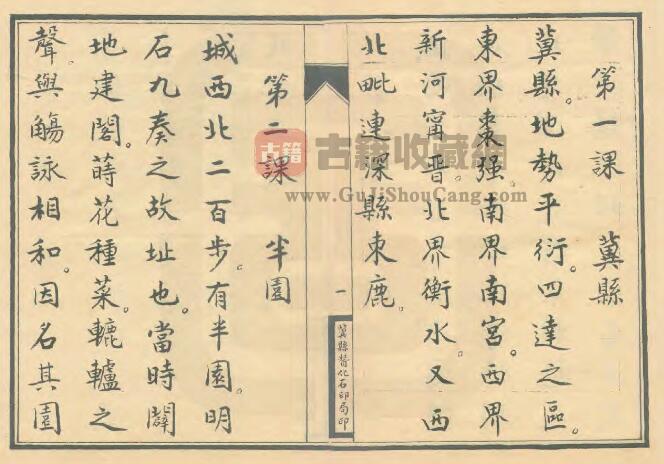 第一課 冀縣
冀縣。地勢平衍。四達之區。
東界棗强。南界南宮。西界
新河甯晉。北界衡水。又西
北毗連深縣束鹿。
一
冀縣 化石印局印
第二課 半園
城西北二百步。有半園。明
石九奏之故址也。當時闢
地建閣。蒔花種菜。轆轤之
聲與觴詠相和。因名其園
古籍
古籍收藏網
www.GuJiShouCang.com